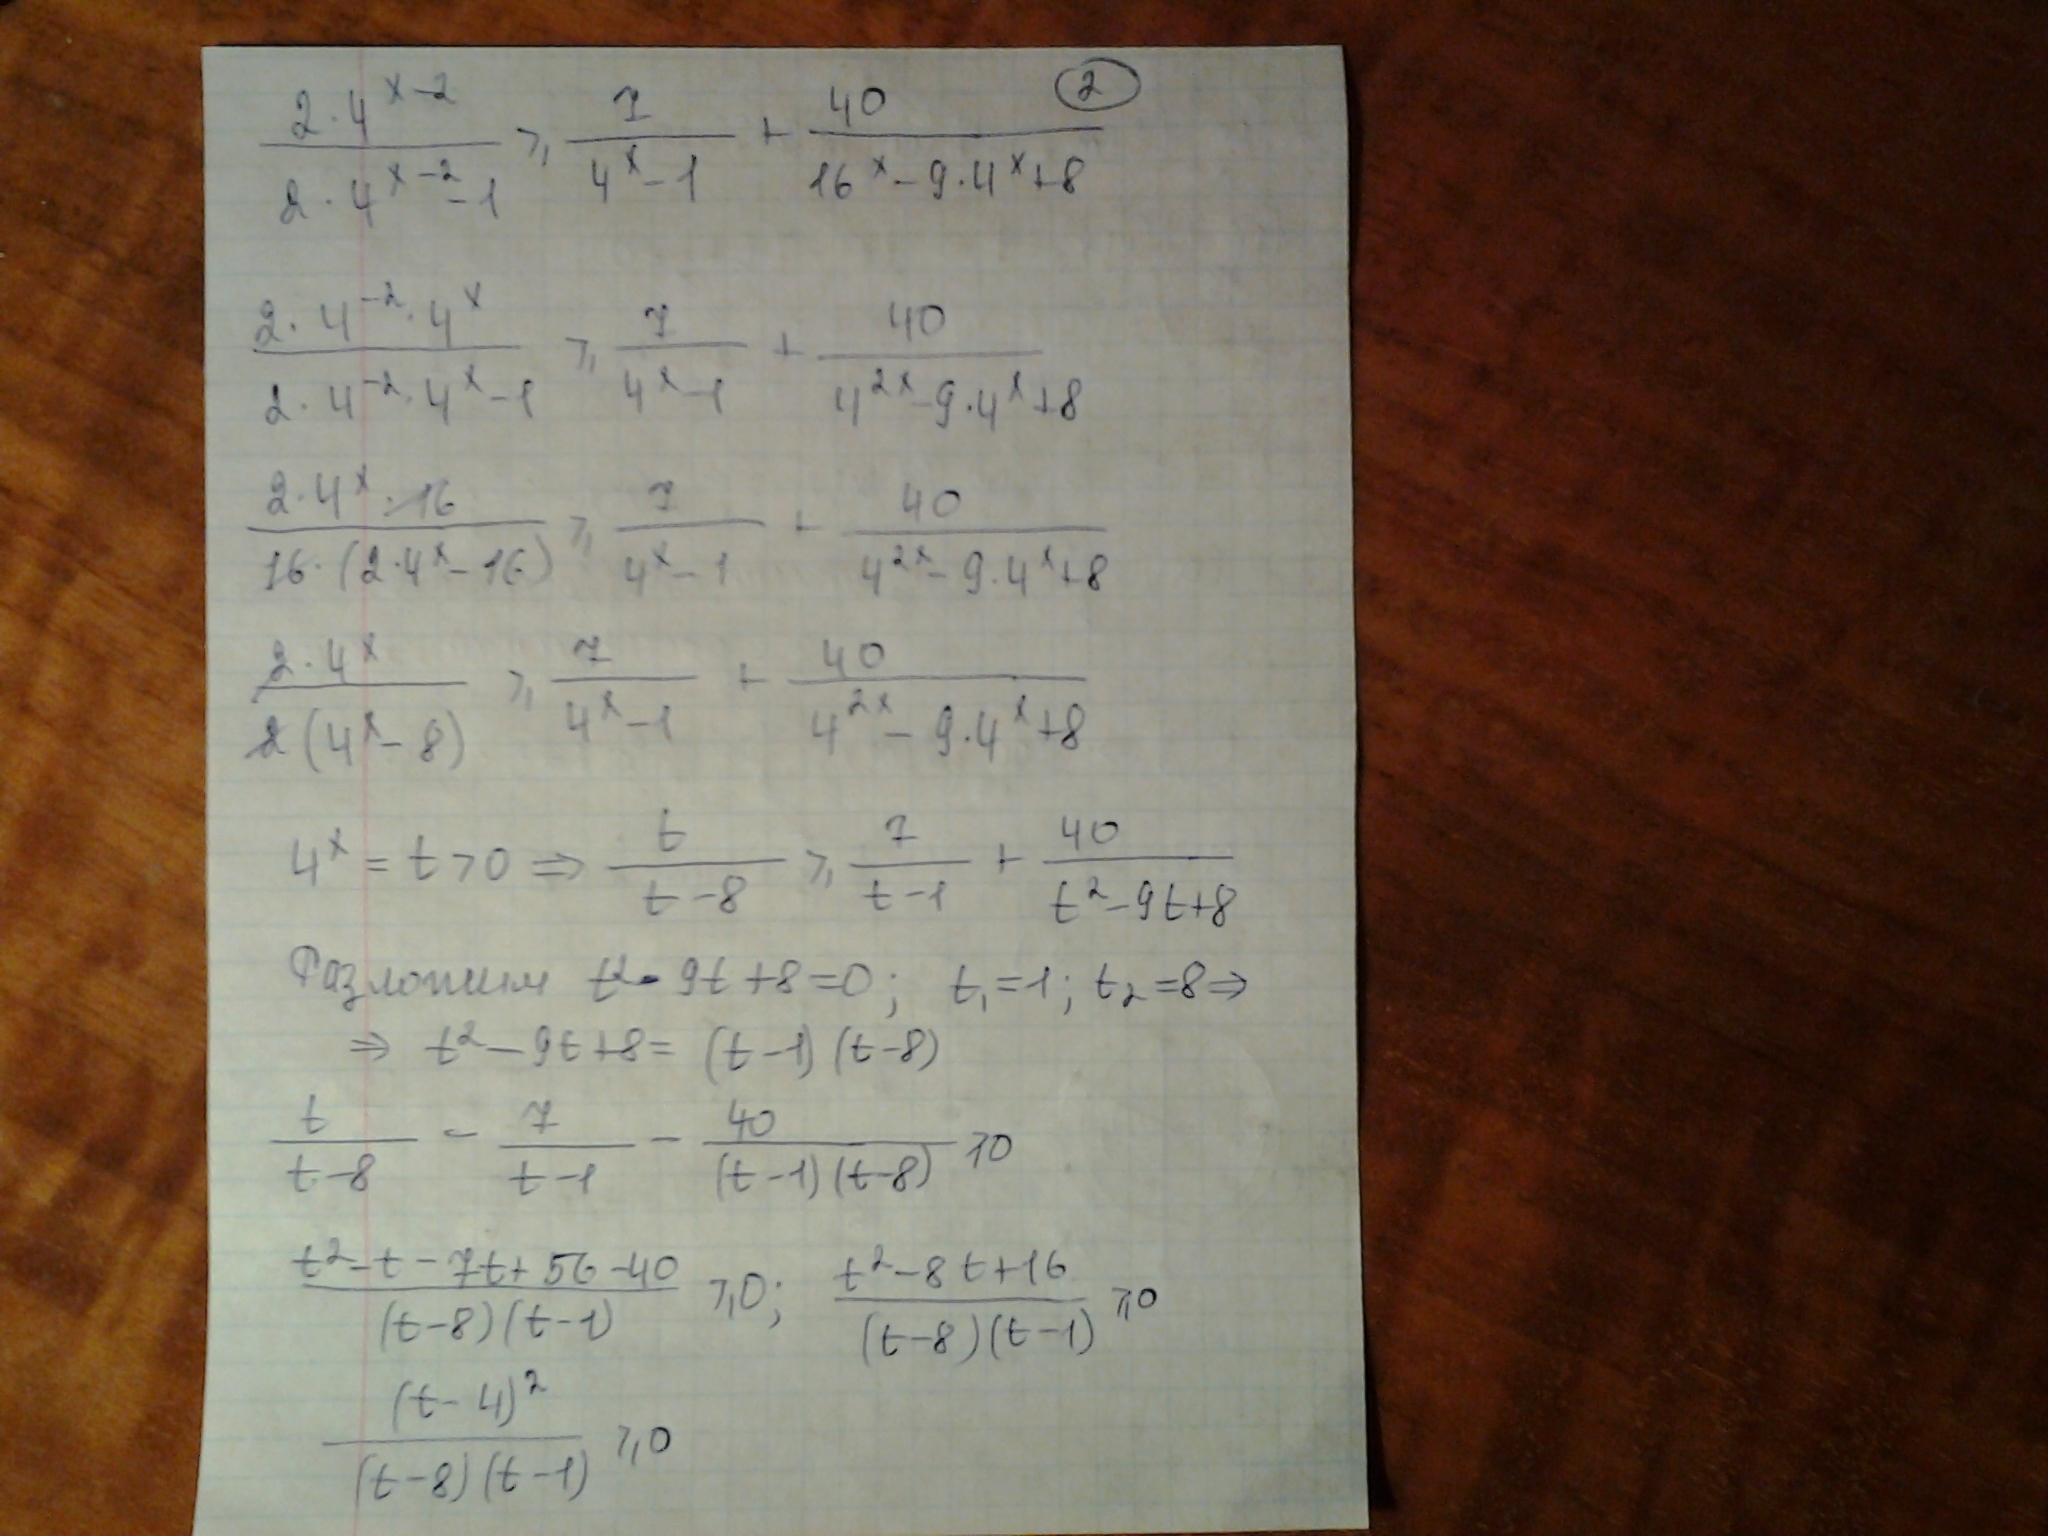 2·4^(x-2) / (2·4^(x-2) - 1) ⩾ 7 / (4^x - 1) + 40 / (16^x - 9·4^x + 8) ②
2·4^(-2)·4^x / (2·4^(-2)·4^x - 1) ⩾ 7 / (4^x - 1) + 40 / (4^(2x) - 9·4^x + 8)
2·4^x·16 / (16·(2·4^x - 16)) ⩾ 7 / (4^x - 1) + 40 / (4^(2x) - 9·4^x + 8)
2·4^x / (2(4^x - 8)) ⩾ 7 / (4^x - 1) + 40 / (4^(2x) - 9·4^x + 8)
4^x = t > 0 ⇒ t / (t - 8) ⩾ 7 / (t - 1) + 40 / (t² - 9t + 8)
Разложим t² - 9t + 8 = 0; t₁ = 1; t₂ = 8 ⇒
⇒ t² - 9t + 8 = (t - 1)(t - 8)
t / (t - 8) - 7 / (t - 1) - 40 / ((t - 1)(t - 8)) ⩾ 0
(t² - t - 7t + 56 - 40) / ((t - 8)(t - 1)) ⩾ 0; (t² - 8t + 16) / ((t - 8)(t - 1)) ⩾ 0
(t - 4)² / ((t - 8)(t - 1)) ⩾ 0